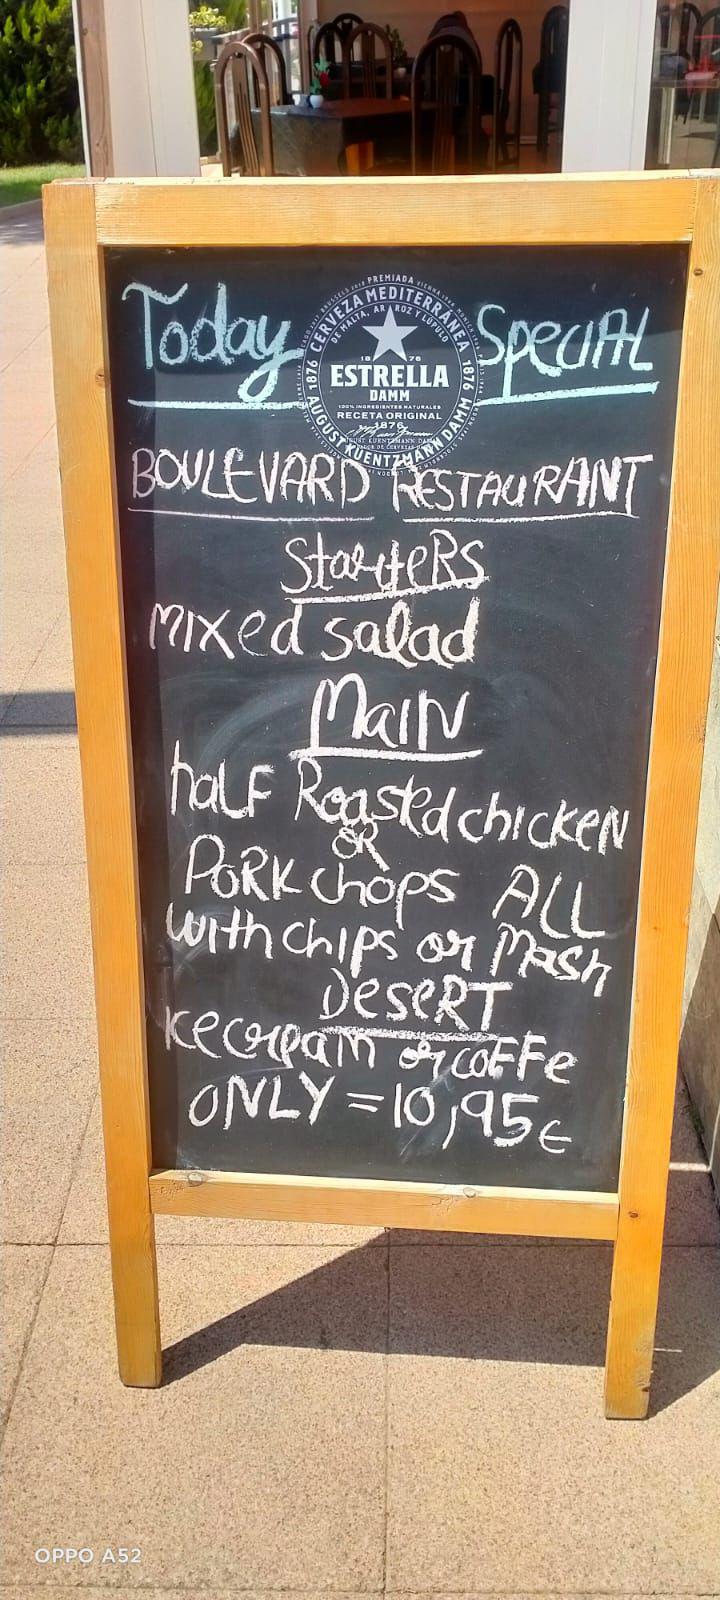 Today Special
PREMIADA
CERVEZA MEDITERRÁNEA
DE MALTA, ARROZ Y LÚPULO
1876
1876
1876
ESTRELLA
DAMM
100% INGREDIENTES NATURALES
RECETA ORIGINAL
1876
AUGUST KUENTZMANN DAMM
BOULEVARD RESTAURANT
StarteRS
mixed salad
MaIN
haLF Roasted chickeN
OR
PORK chops ALL
with chips or Mash
DeseRT
Icecream or coFFe
ONLY = 10,95€
OPPO A52